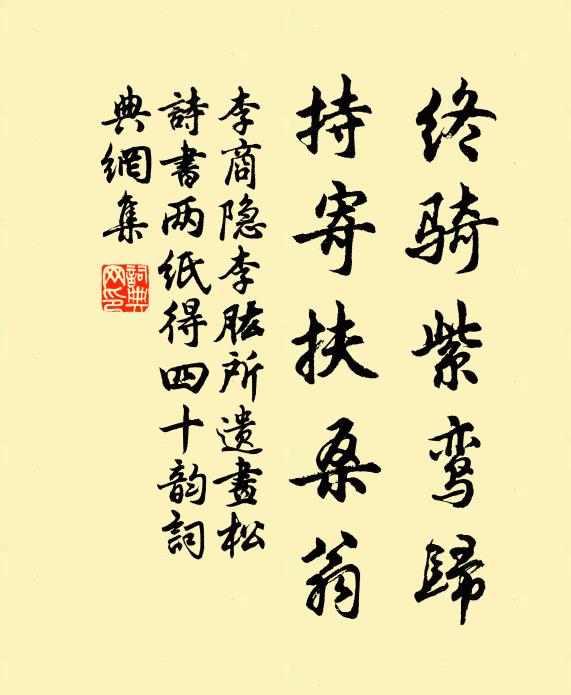 终骑紫鸾歸
持寄扶桑翁
李商隐李肱所遗畫松
詩書两纸得四十韵詞
典網集
詞典网印